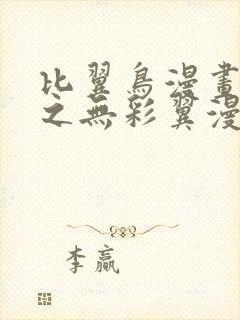 比翼鳥漫畫
之無彩翼漫
李赢